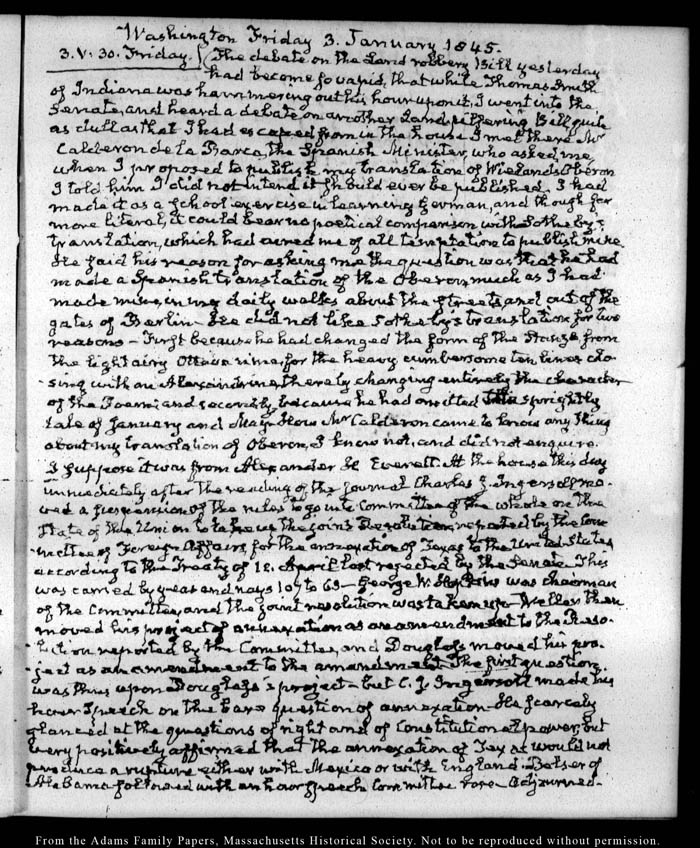 Washington Friday 3. January 1845.
3. V: 30. Friday. The debate on the Land robbery Bill yesterday
had become so vapid, that while Thomas Smith
of Indiana was hammering out his hour upon it, I went into the
Senate, and heard a debate on another Land pilfering Bill, quite
as dull as that I had escaped from in the house. I met there Mr
Calderon de la Barca, the Spanish Minister, who asked me,
when I proposed to publish my translation of Wieland's Oberon
I told him I did not intend it should ever be published, I had
made it as a school exercise in learning German, and though far
more literal, it could bear no poetical comparison with Sotheby's
translation, which had cured me of all temptation to publish mine.
He said his reason for asking me the question was, that he had
made a Spanish translation of the Oberon, much as I had
made mine, in my daily walks about the streets and out of the
gates of Berlin— He did not like Sotheby's translation for two
reasons— First because he had changed the form of the Stanza from
the light airy Ottava rima, for the heavy cumbersome ten lines clo-
sing with an Alexandrine, thereby changing entirely the character
of the Poem; and secondly because he had omitted the sprightly
tale of January and May. How Mr Calderon came to know any thing
about my translation of Oberon, I know not, and did not enquire.
I suppose it was from Alexander H. Everett. At the house this day
immediately after the reading of the journal Charles J. Ingersoll mo-
ved a suspension of the rules to go into Committee of the whole on the
State of the Union to take up the joint Resolution reported by the Com-
mittee of Foreign Affairs, for the annexation of Texas to the United States
according to the Treaty of 12. April last rejected by the Senate. This
was carried by yeas and nays 107 to 63— George W. Hopkins was chairman
of the Committee, and the joint resolution was taken up— Weller then
moved his project of annexation as an amendment to the Reso-
lution reported by the Committee, and Douglass moved his pro-
ject as an amendment to the amendment. The first question,
was thus upon Douglass's project— but C. J. Ingersoll made his
hour Speech on the bare question of annexation— He scarcely
glanced at the questions of right and of Constitutional power, but
very positively affirmed that the annexation of Texas would not
produce a rupture either with Mexico or with England. Belser of
Alabama followed with an hour speech Committee rose— Adjourned.
From the Adams Family Papers, Massachusetts Historical Society. Not to be reproduced without permission.